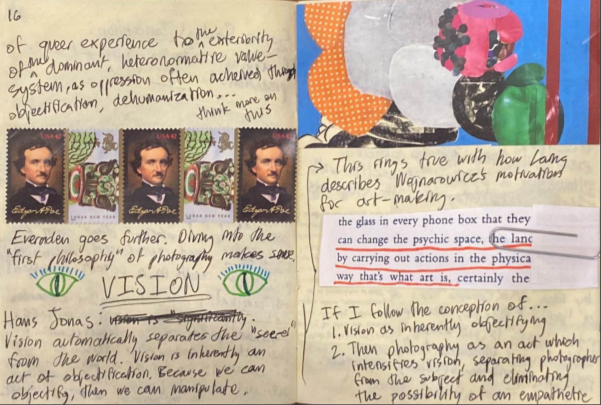 16
of queer experience to the exteriority
of the dominant, heteronormative value-
system, as oppression often achieved through
objectification, dehumanization...
think more on
this
USA 42
USA 42
USA 42
Edgar A Poe
LUNAR NEW YEAR
Edgar A Poe
LUNAR NEW YEAR
Edgar A Poe
Evernden goes further. Diving into the
"first philosophy" of photography makes sense.
VISION
Hans Jonas. vision is "significantly.
Vision automatically separates the "seer"
from the world. Vision is inherently an
act of objectification. Because we can
objectify, then we can manipulate.
→ This rings true with how Laing
describes Wojnarowicz's motivations
for art-making.
the glass in every phone box that they
can change the psychic space, the lanc
by carrying out actions in the physica
way that's what art is, certainly the
If I follow the conception of...
1. Vision as inherently objectifying
2. Then photography as an act which
intensifies vision, separating photographer
from the subject and eliminating
the possibility of an empathetic